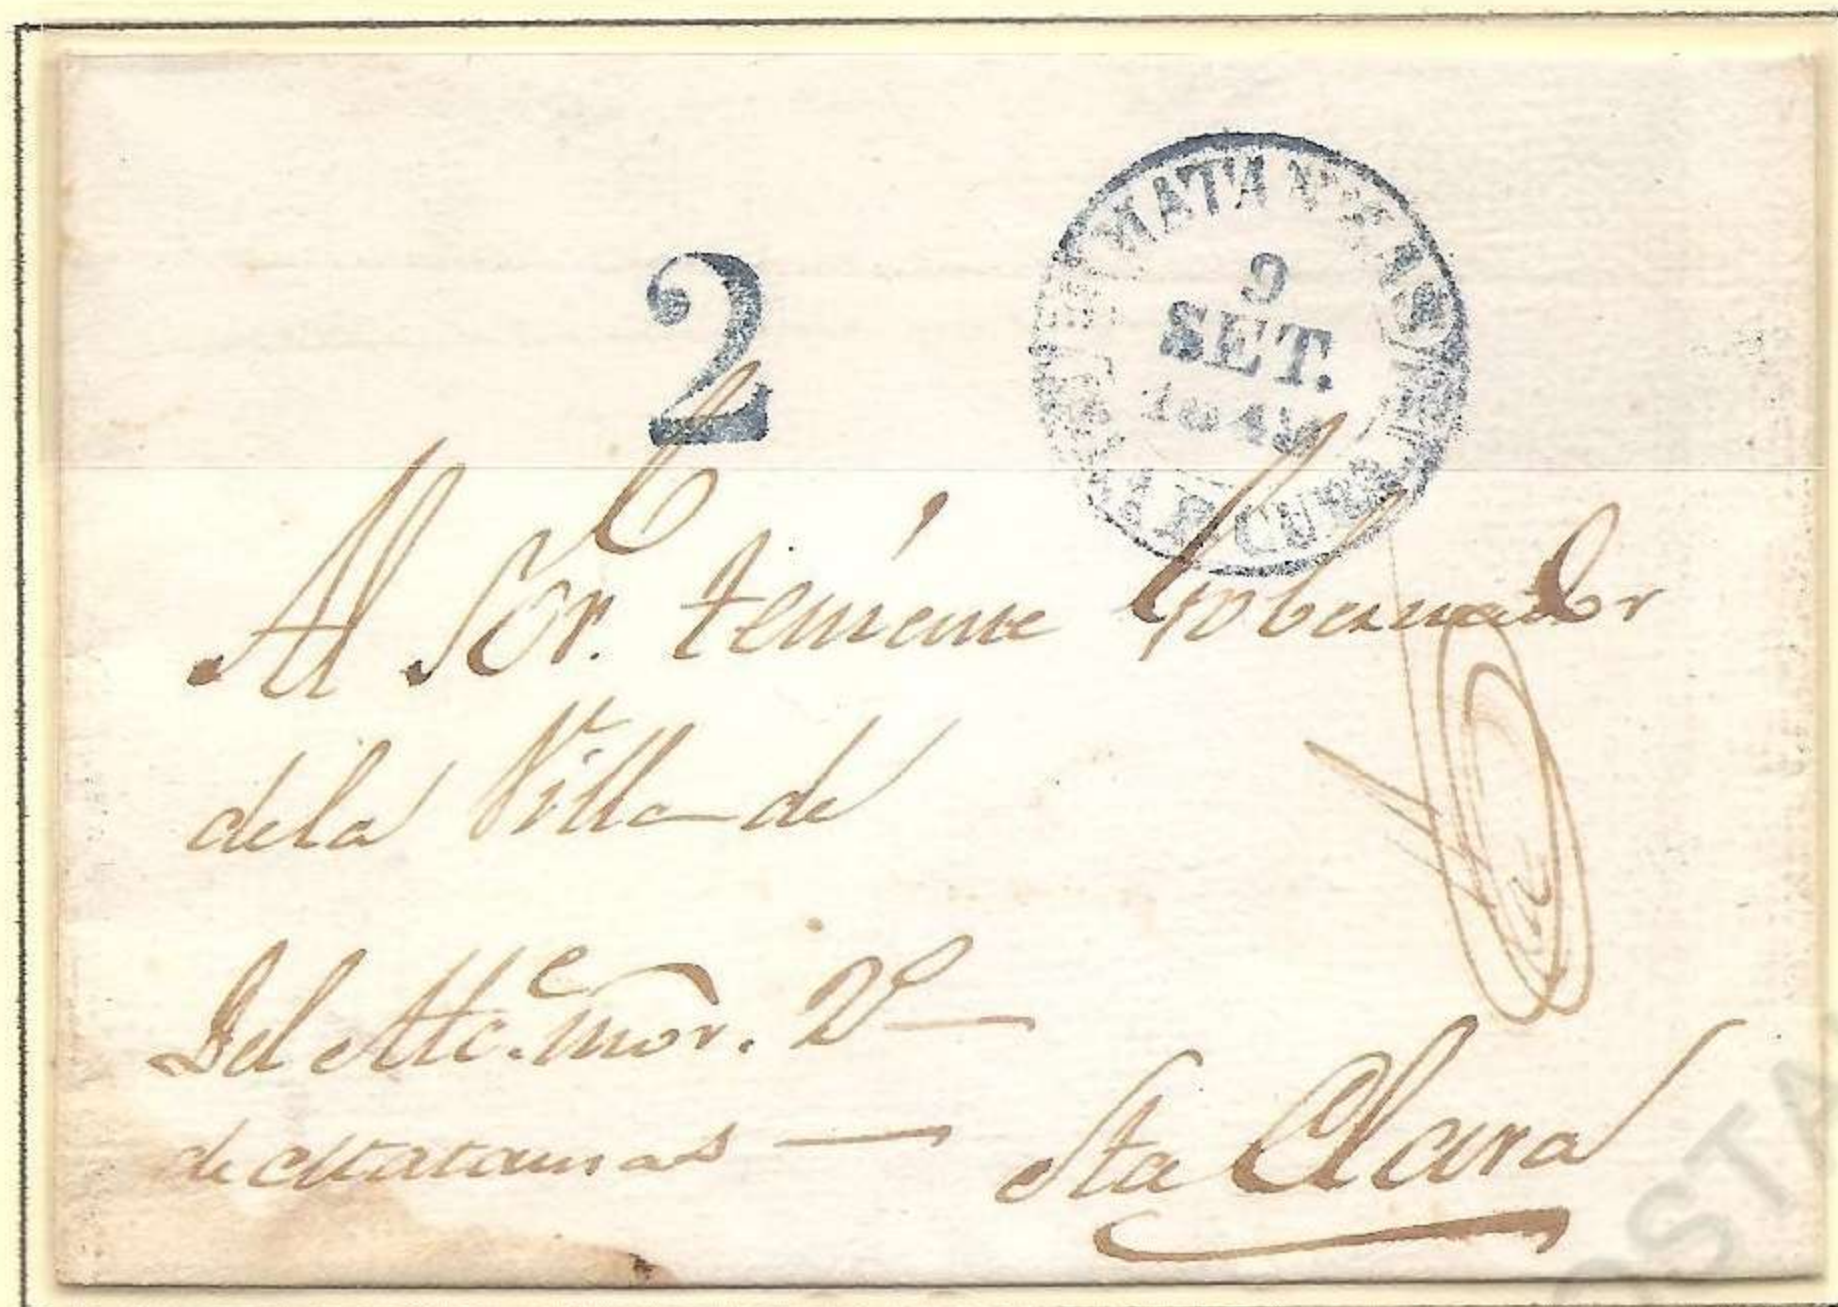 2
MATANZAS
9
SET.
184
Al Sor. teniente Gobernador
de la Villa de
Del Alce. mor. 2º
de Matanzas
Sta Clara